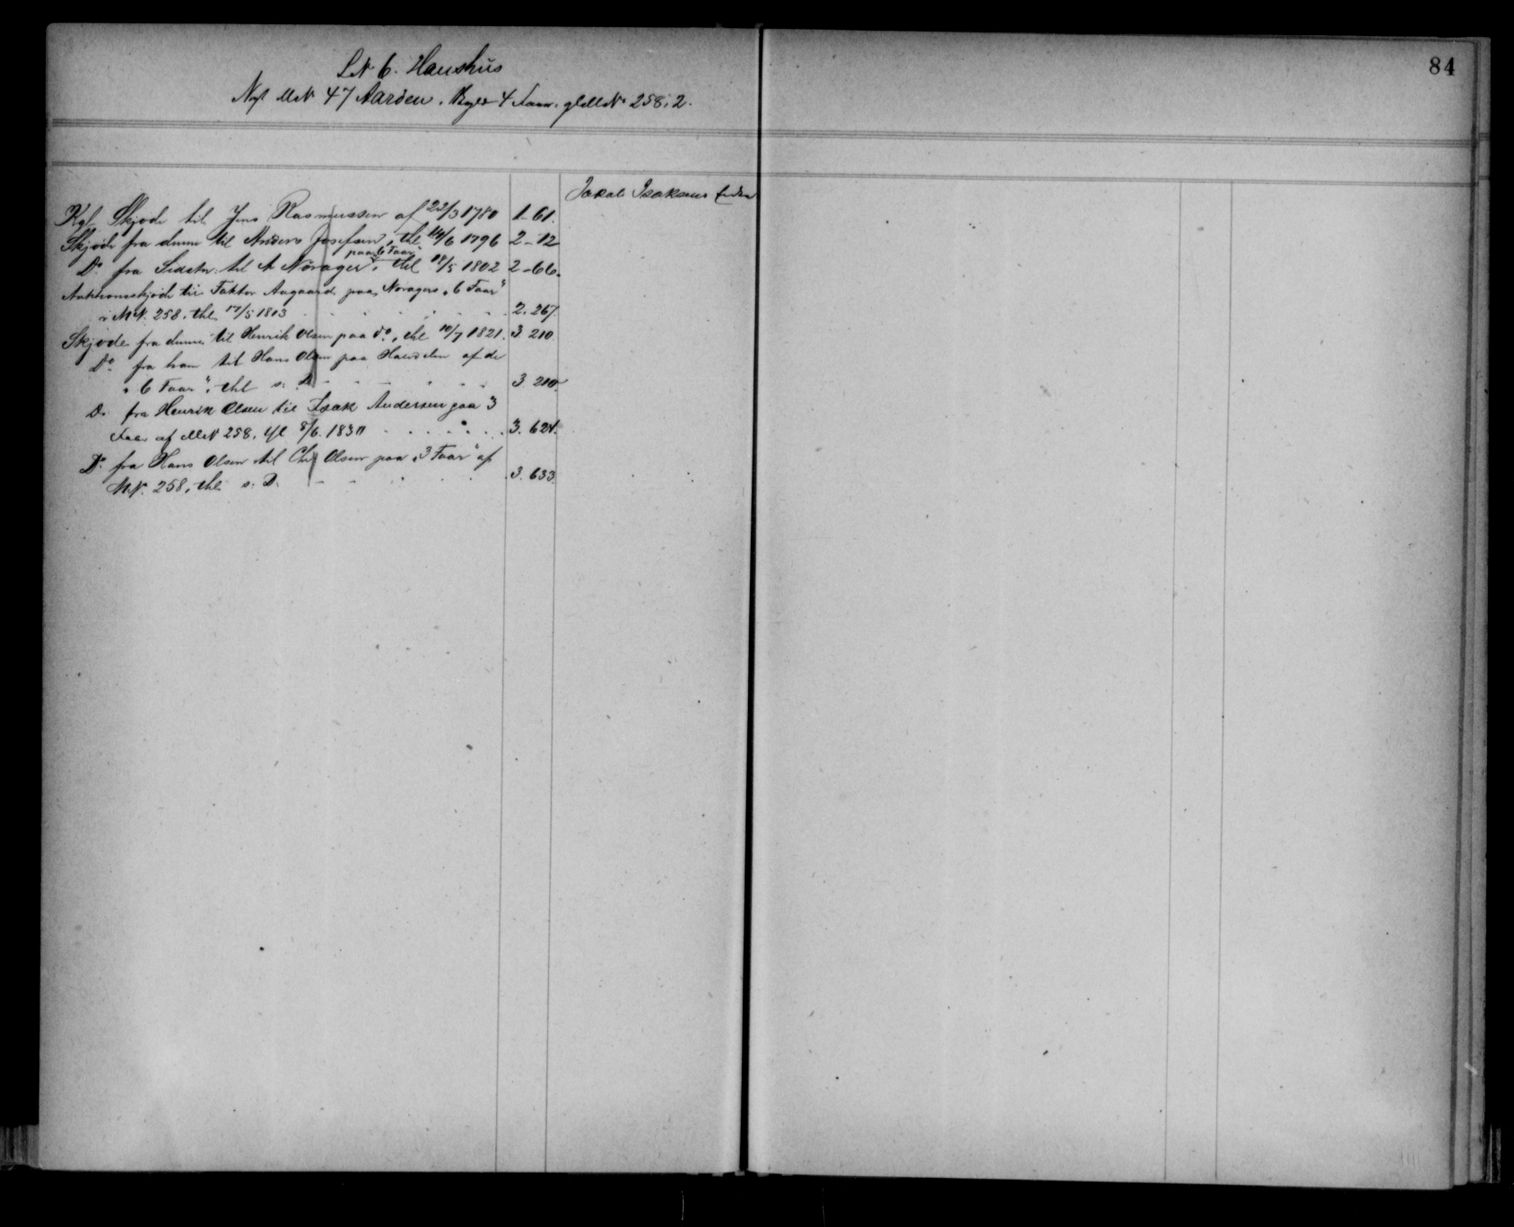 84
L.N. 6. Hanshus
Nyt M.N. 47 Aarden. 4 Faar. gl. M.N. 258,2.
Jakob Isaksens
Kgl. Skjøde til Jens Rasmussen af 22/3 1780 1-61.
Skjøde fra denne til Anders Josefsen, thl. 14/6 1796 2-12
Do fra Sidstn. til A Nórager paa "6 Faar", thl 18/5 1802 2-66.
Auktionsskjøde til Faktor Aagaard paa Noragers "6 Faar"
i M.N. 258, thl. 17/5 1803 2.267
Skjøde fra denne til Henrik Olsen paa do, thl 10/7 1821. 3 210
Do fra ham til Hans Olsen paa Halvdelen af de
"6 Faar", thl s. D. 3. 210
Do fra Henrik Olsen til Isak Andersen paa 3
Faar af M.N. 258, thl 8/6. 1830 3. 624.
Do fra Hans Olsen til Chr Olsen paa "3 Faar" af
M.N. 258, thl. s. D. 3. 633.